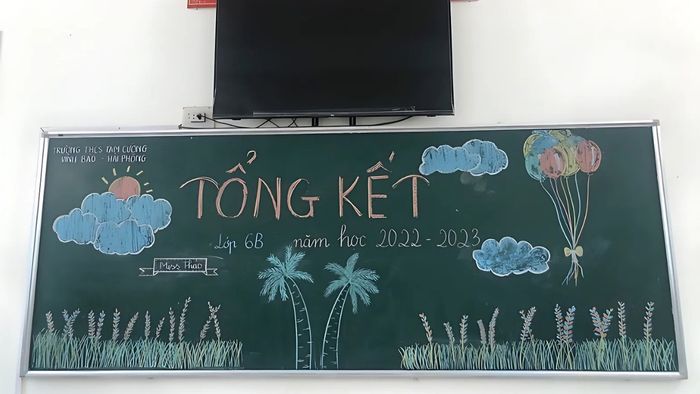 TRƯỜNG THCS TAM CƯỜNG
VĨNH BẢO - HẢI PHÒNG
TỔNG KẾT
Lớp 6B năm học 2022-2023
Miss Thảo